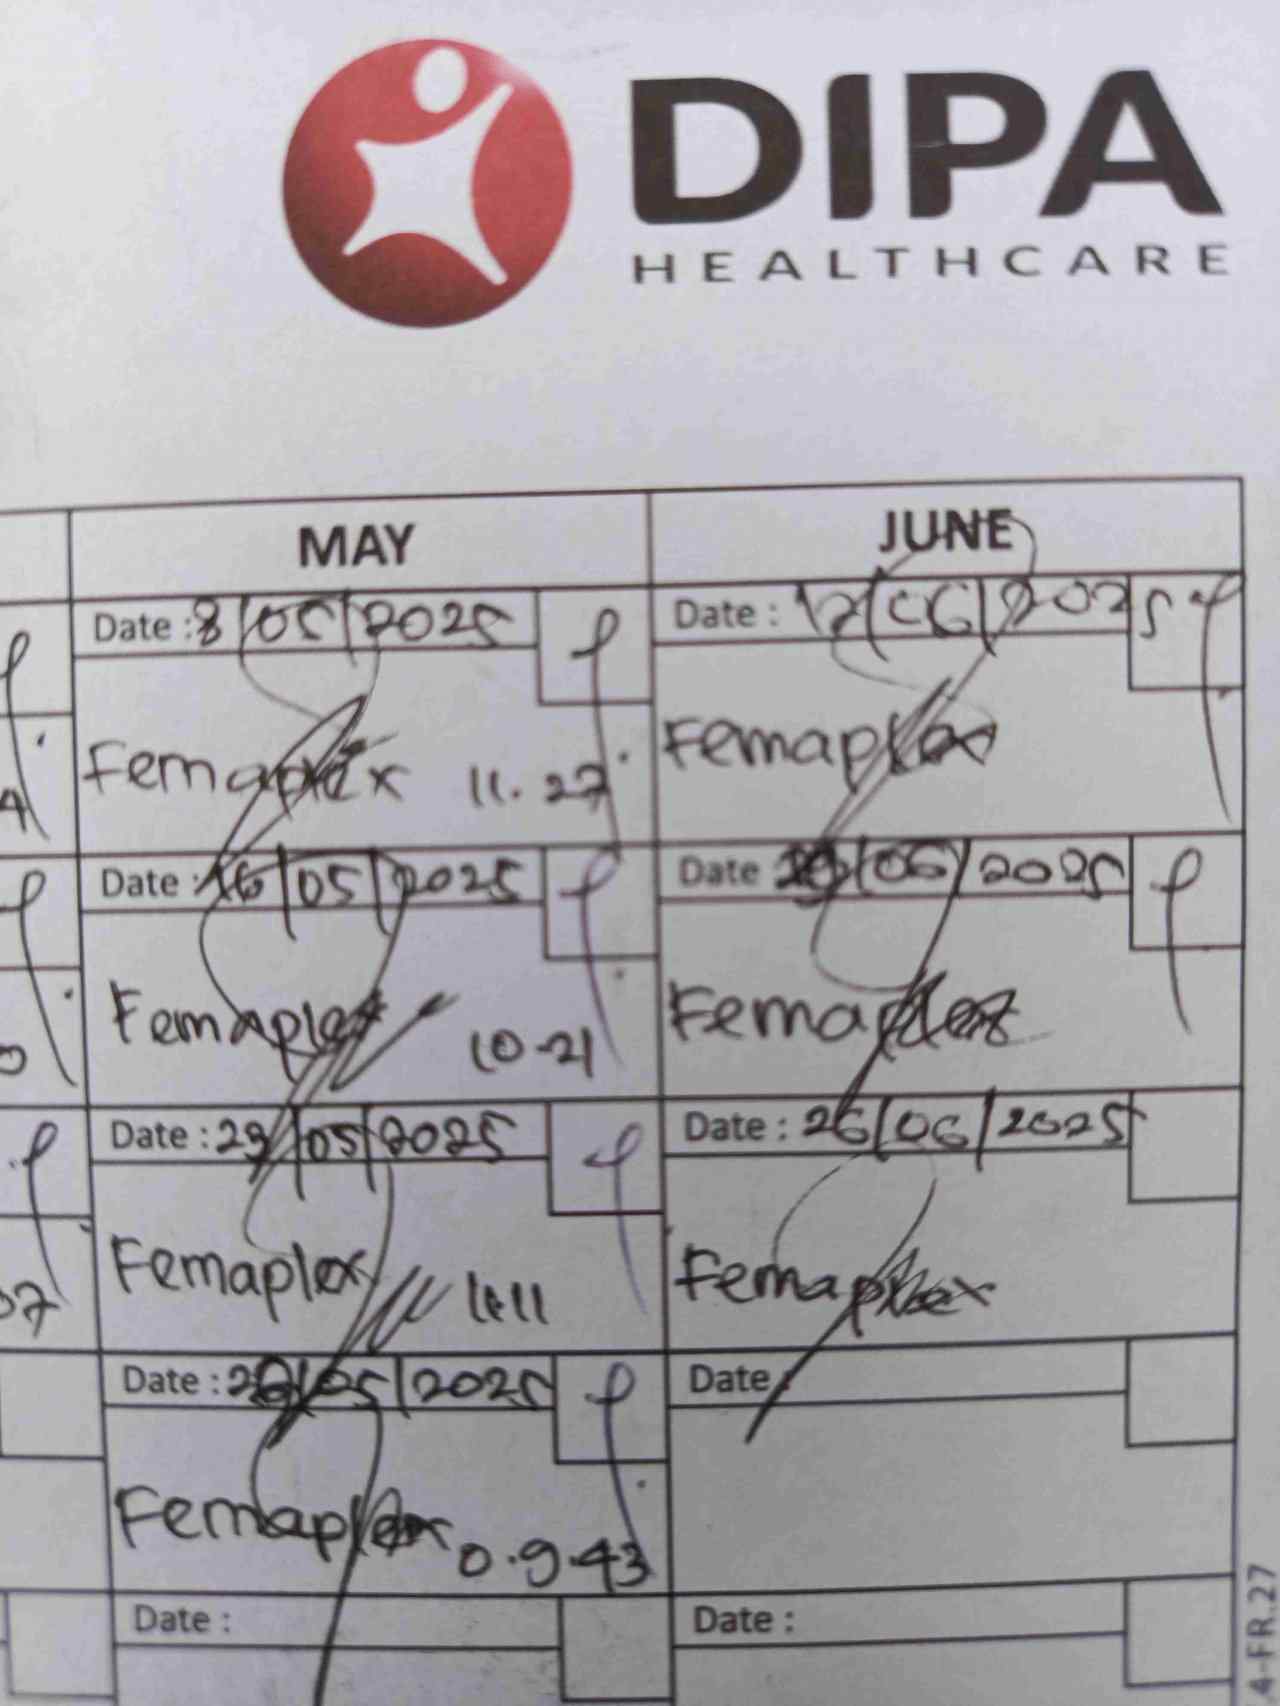 DIPA
HEALTHCARE
MAY
JUNE
Date : 8/05/2025
Femaplex 11.27
Date : 12/06/2025
Femaplex
Date : 16/05/2025
Femaplex 10-21
Date /06/2025
Femaplex
Date : 23/05/2025
Femaplex 11:11
Date : 26/06/2025
Femaplex
Date : /05/2025
Femaplex 0.9.43
Date
Date :
Date :
4-FR.27